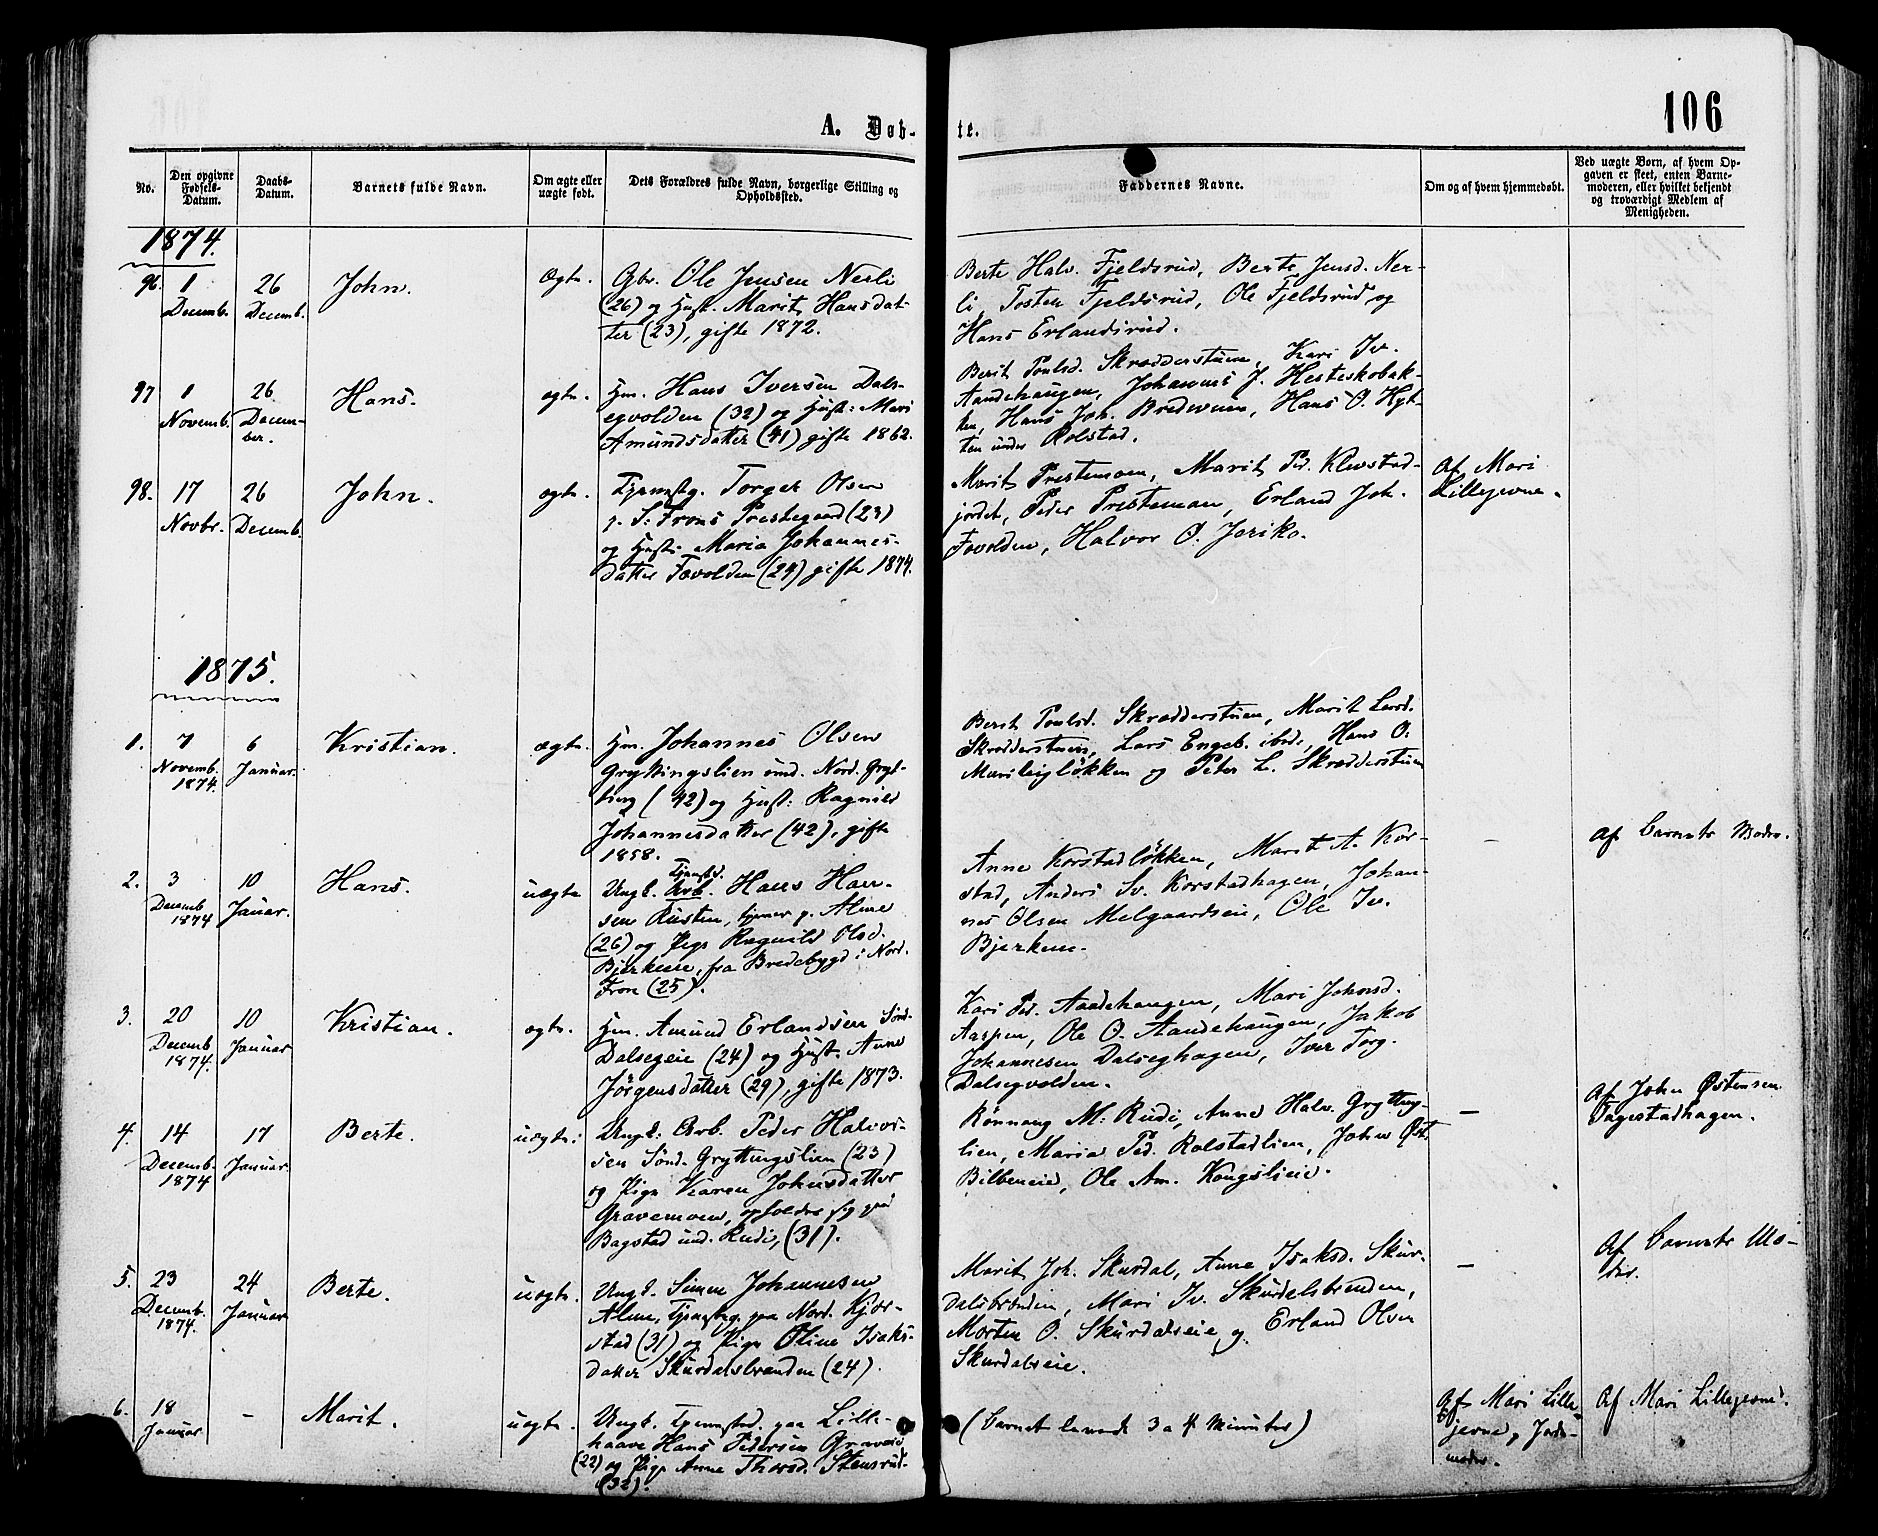 106
A. Døb-
te.
No.
Den opgivne
Fødsels-
Datum.
Daabs-
Datum.
Barnets fulde Navn.
Om ægte eller
uægte født.
Dets Forældres fulde Navn, borgerlige Stilling og
Opholdssted.
Faddernes Navne.
Om og af hvem hjemmedøbt.
Ved uægte Børn, af hvem Op-
gaven er skeet, enten Barne-
moderen, eller hvilket bekjendt
og troværdigt Medlem af
Menigheden.
1874.
96. 1
Decemb.
26
Decemb.
John.
Ægte.
Gbr. Ole Jensen Nerli
(26) og Hust. Marit Hansdat-
ter (23), gifte 1872.
Berte Halv. Fjeldsrud, Berte Jensd. Ner-
li, Tosten Fjeldsrud, Ole Fjeldsrud og
Hans Erlandsrud.
97 1
Novemb.
26
Decem-
ber.
Hans.
ægte.
Hm. Hans Iversen Dals-
egvolden (32) og Hust: Mari
Amundsdatter (41) gifte 1862.
Berit Poulsd. Skrædderstuen, Kari Iv.
Aandehaugen, Johannes J. Hesteskobak-
ken, Hans Joh. Bredevum, Hans O. Hyt-
ten under Rolstad.
98. 17
Novbr.
26
Decemb.
John.
ægte.
Tjenestg. Torger Olsen
p. S: Frons Prestegaard (23)
og Hust. Maria Johannes-
datter Fævolden (24) gifte 1874.
Marit Prestemoen, Marit Ped. Klevstad-
jordet, Peder Prestemoen, Erland Joh.
Fævolden, Halvor O. Jeriko.
Af Mari
Lillejevne.
1875.
1. 7
Novemb.
1874.
6
Januar.
Kristian.
ægte.
Hm. Johannes Olsen
Gryttingslien und. Nord. Gryt-
ting (42) og Hust: Ragnild
Johannesdatter (42), gifte
1858.
Berit Poulsd. Skrædderstuen, Marit Larsd.
Skrædderstuen, Lars Engeb. ibid., Hans O.
Marileigløkken og Peter L. Skrædderstuen
2. 3
Decemb
1874
10
Januar.
Hans.
uægte
Tjenestd.
Ungk. Arb. Hans Han-
sen Rusten, tjener p. Alme
(26) og Pige Ragnild Olsd.
Bjerkeeie, fra Bredebygd i Nord.
Fron (25).
Anne Korstadløkken, Marit A. Kor-
stad, Anders Sv. Korstadhagen, Johan-
nes Olsen Melgaardseie, Ole Iv.
Bjerkeeie.
–
Af Barnets Moder.
3. 20
Decemb
1874.
10
Januar
Kristian.
ægte.
Hm. Amund Erlandsen Sønd.
Dalsegeie (24) og Hust. Anne
Jörgensdatter (29), gifte 1873.
Kari Ped. Aandehaugen, Mari Johnsd.
Aaspen, Ole O. Aandehaugen, Jakob
Johannesen Dalseghagen, Iver Torg.
Dalsegvolden.
4. 14
Decemb.
1874
17
Januar
Berte.
uægte:
Ungk. Arb. Peder Halvor-
sen Sønd. Gryttingslien (23)
og Pige Karen Johnsdatter
Gravemoen, opholder sig paa
Bagstad und. Rudi, (31).
Rønnaug M: Rudi, Anne Halv. Grytting-
lien, Maria Ped. Rolstadlien, John Øst.
Bilbeneie, Ole Am. Kongslieie.
–
Af John Østensen
Tagestadhagen.
5. 23
Decemb.
1874.
24
Januar
Berte.
uægte.
Ungk. Simen Johannesen
Alme, Tjenestg. paa Nord. Kjør-
stad (31) og Pige Oline Isaks-
datter Skurdalsbrænden (24).
Marit Joh. Skurdal, Anne Isaksd. Skur-
dalsbrænden, Mari Iv. Skurdalsbrænden,
Morten O. Skurdalseie og Erland Olsen
Skurdalseie.
–
Af Barnets Mo-
der.
6. 18
Januar
–
Marit.
uægte.
Ungk. Tjenested. paa Lille-
haave Hans Pedersen Graveeie
(22) og Pige Anne Thorsd. Stensrud.
(32).
(Barnet levede 3 a 4 Minuter)
Af Mari Lille-
jevne, Jorde-
moder.
Af Mari Lillejevne.